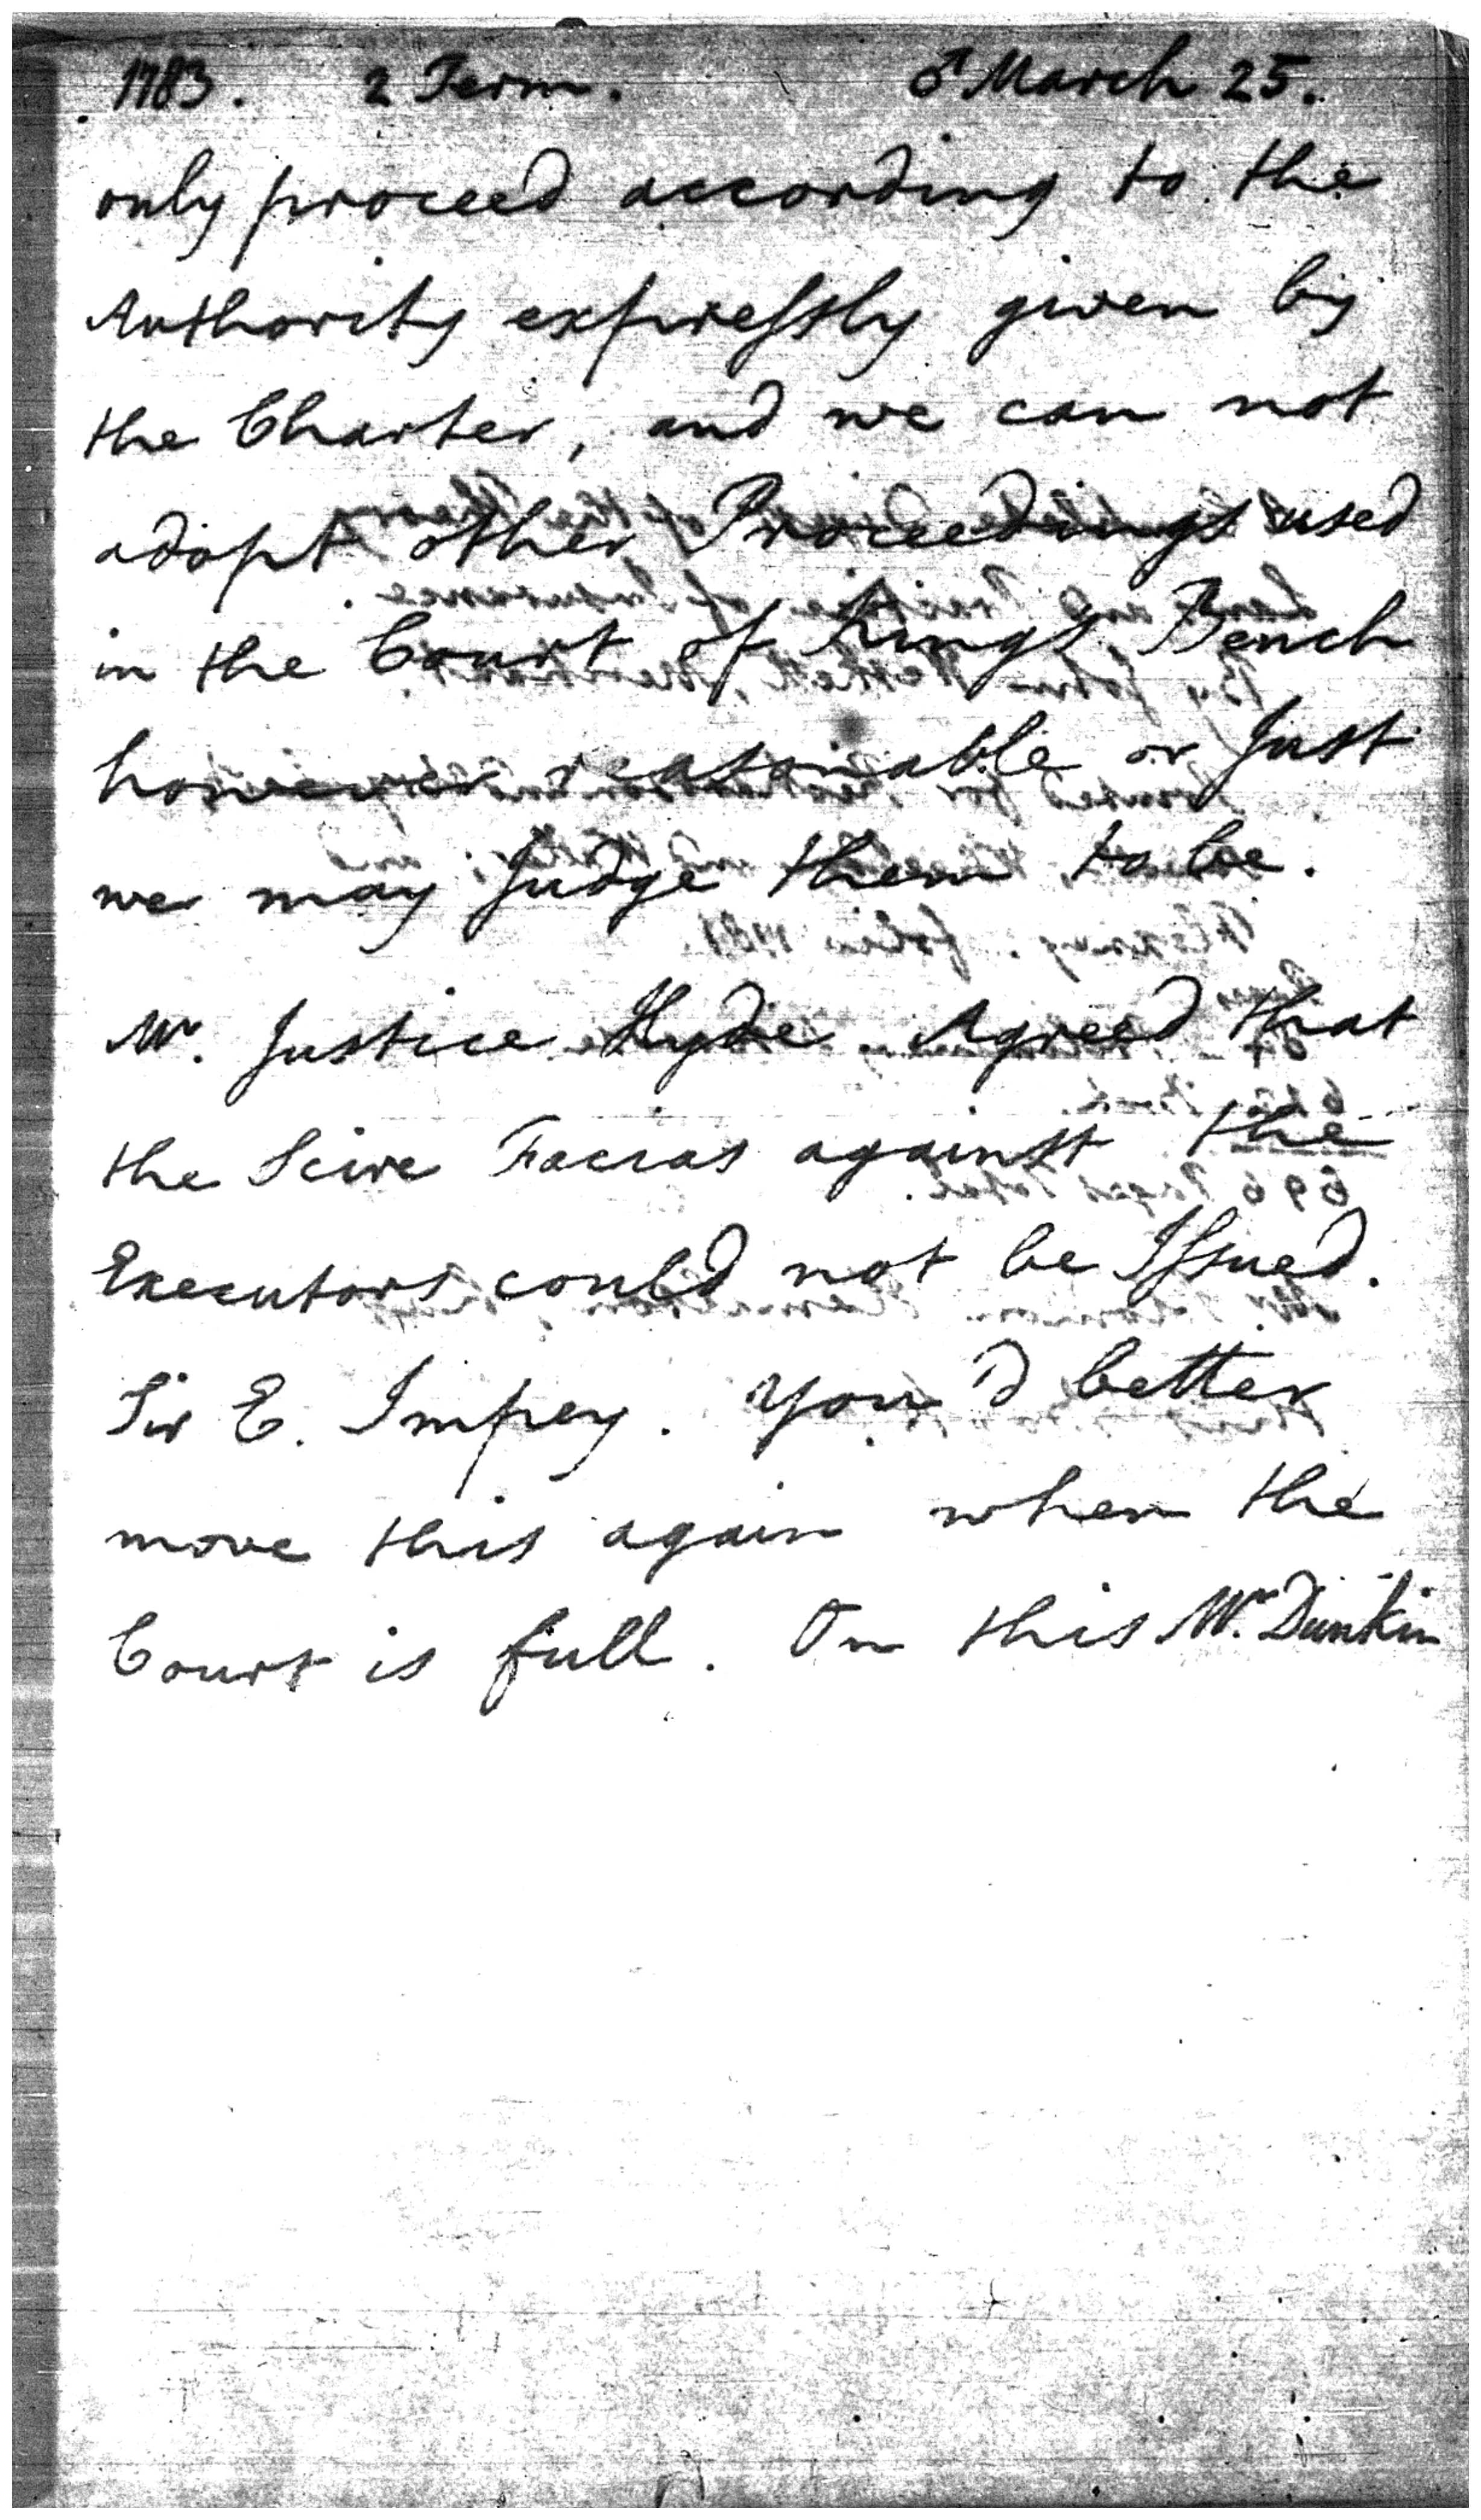 1783. 2 Term. ♂ March 25.
only proceed according to the
Authority expreſsly given by
the Charter, and we can not
adopt other Proceedings used
in the Court of Kings Bench
however reasonable or Just
we may Judge them to be.
Mr. Justice Hyde Agreed that
the Scire Facias against the
Executors could not be Iſsued.
Sir E. Impey. You'd better
move this again when the
Court is full. On this Mr. Dunkin